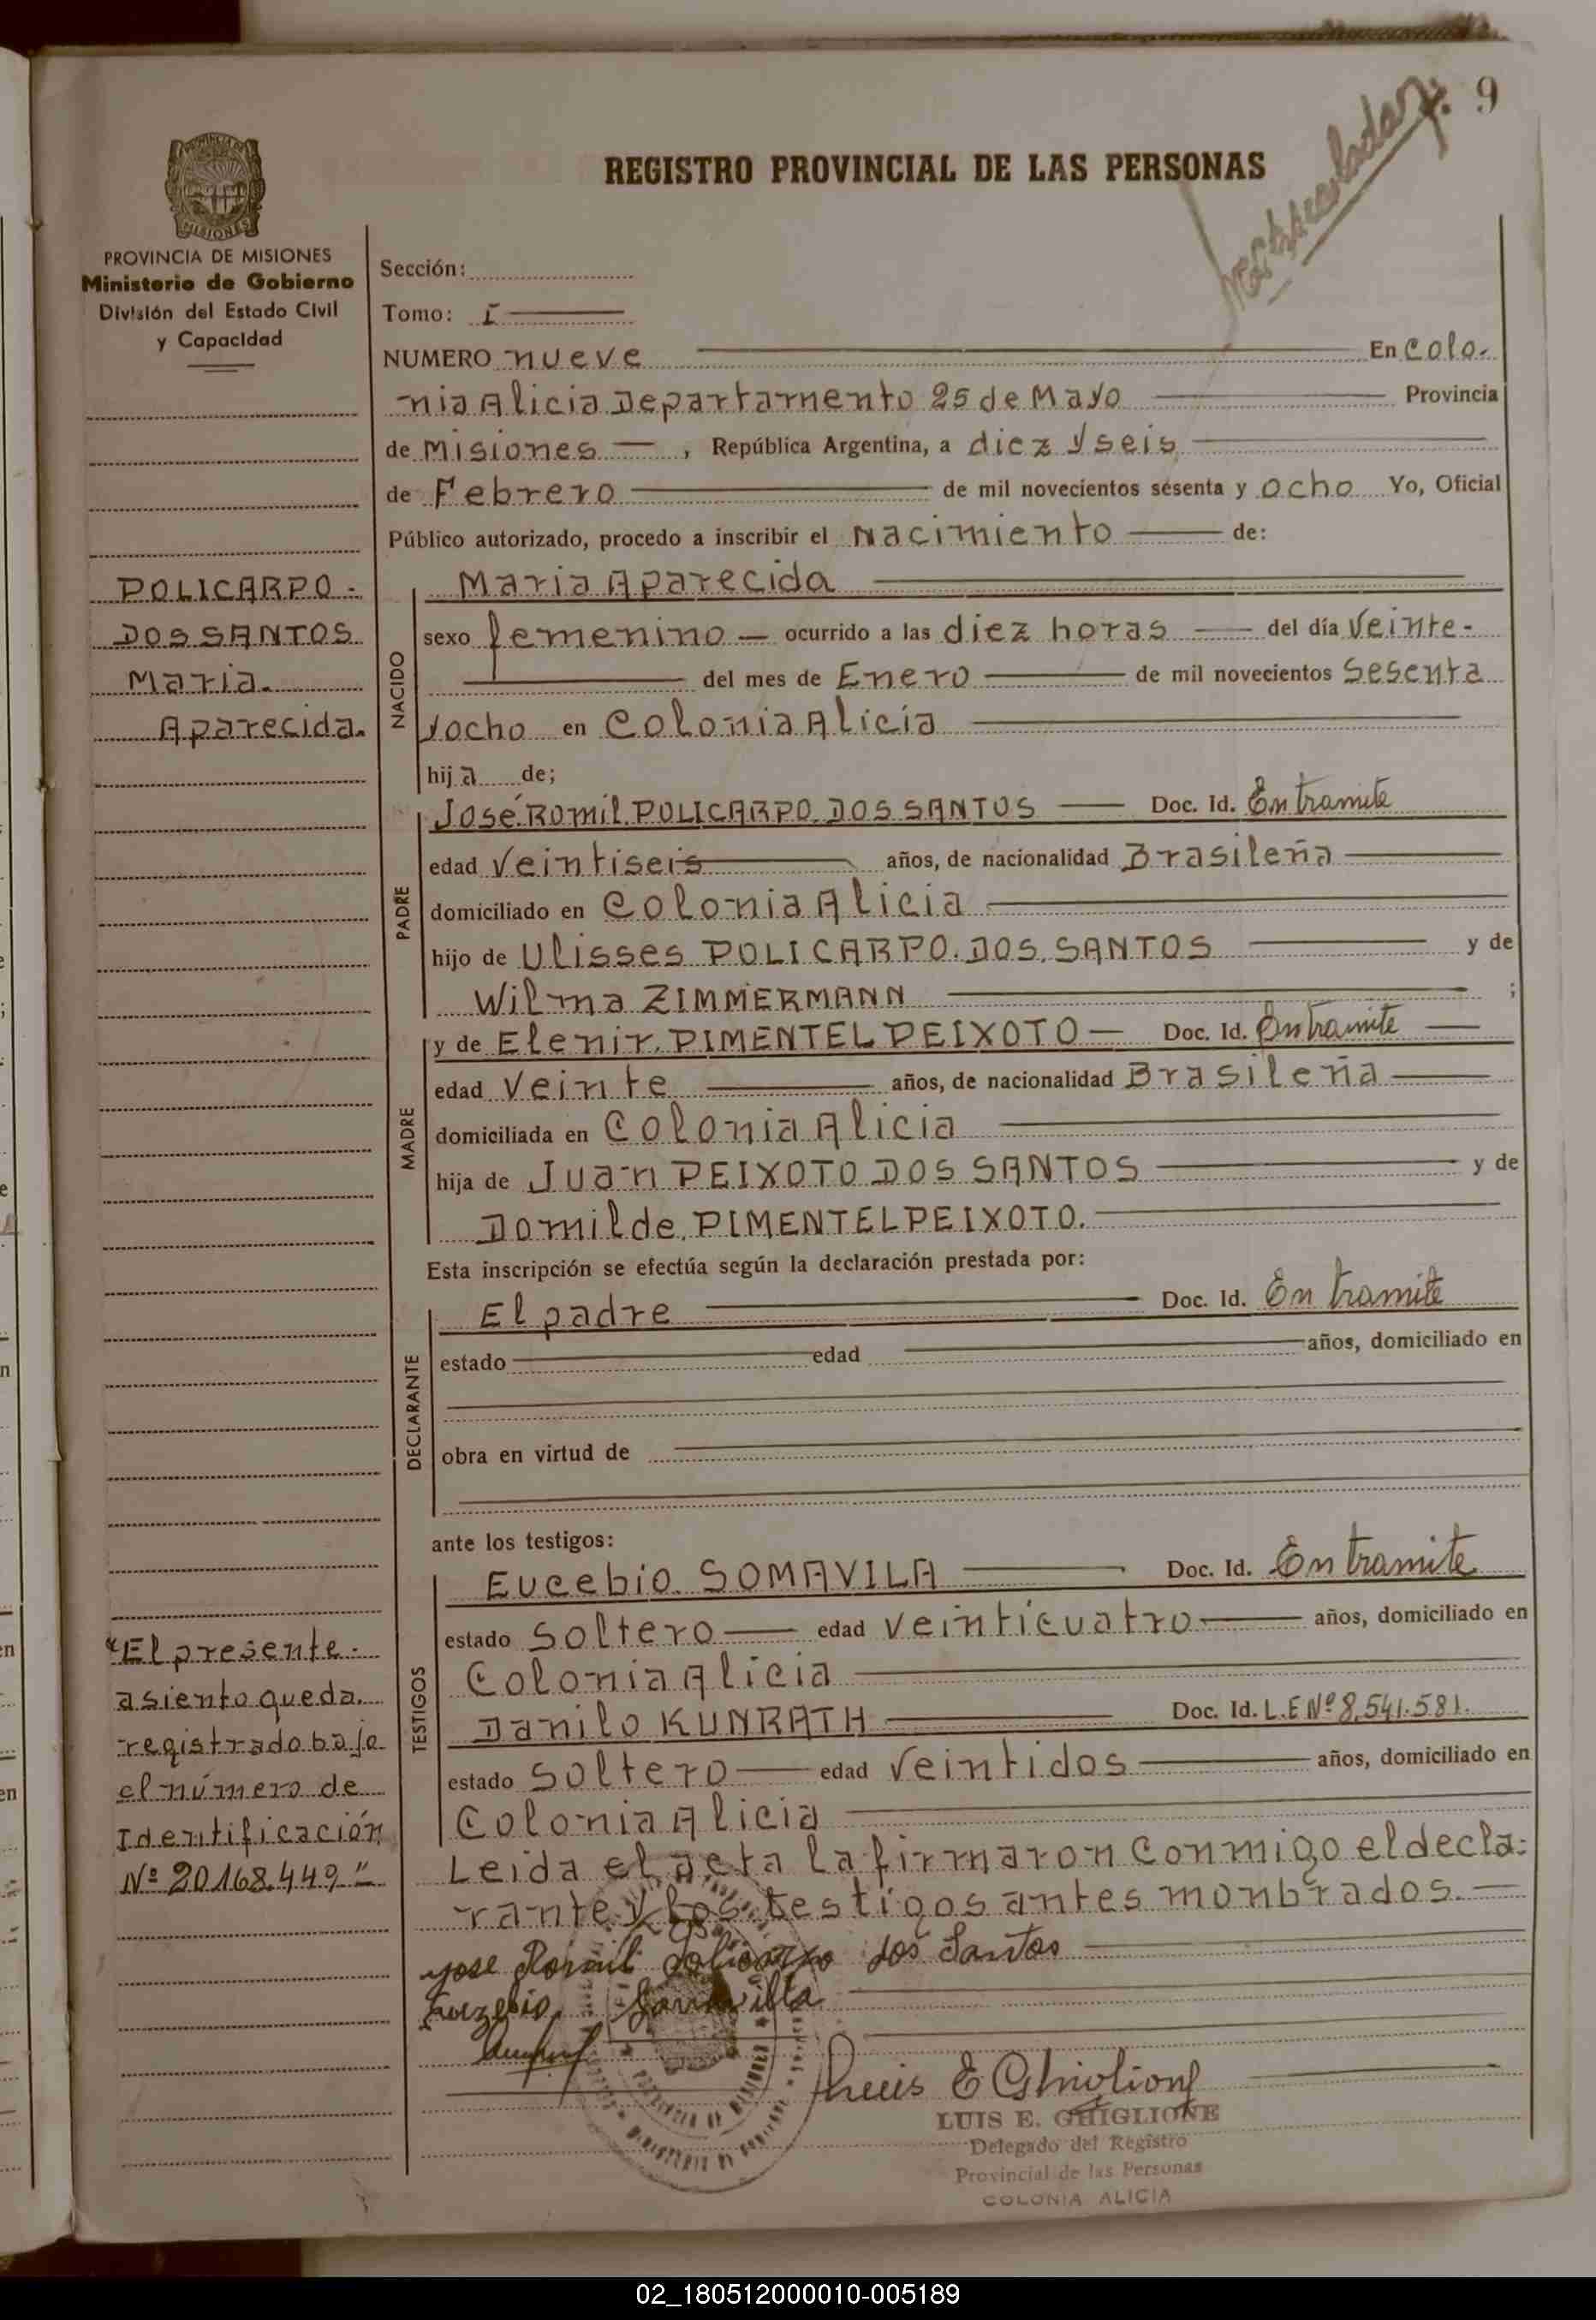 9
Matriculada
REGISTRO PROVINCIAL DE LAS PERSONAS
PROVINCIA DE MISIONES
Ministerio de Gobierno
División del Estado Civil
y Capacidad
POLICARPO-
DOS SANTOS
Maria
Aparecida.
"El presente-
asiento queda
registrado bajo
el número de
Identificación
Nº 20168.449"
Sección:
Tomo: I
NUMERO nueve En Colo-
nia Alicia Departamento 25 de Mayo Provincia
de Misiones, República Argentina, a diez y seis
de Febrero de mil novecientos sesenta y ocho Yo, Oficial
Público autorizado, procedo a inscribir el Nacimiento de:
NACIDO
Maria Aparecida
sexo femenino ocurrido a las diez horas del día veinte-
del mes de Enero de mil novecientos sesenta
y ocho en Colonia Alicia
hija de;
PADRE
José Romil POLICARPO DOS SANTOS Doc. Id. En tramite
edad veintiseis años, de nacionalidad Brasileña
domiciliado en Colonia Alicia
hijo de Ulisses POLICARPO. DOS. SANTOS y de
Wilma ZIMMERMANN ;
MADRE
y de Elenir. PIMENTEL PEIXOTO Doc. Id. En tramite
edad veinte años, de nacionalidad Brasileña
domiciliada en Colonia Alicia
hija de Juan PEIXOTO DOS SANTOS y de
Domilde. PIMENTEL PEIXOTO.
Esta inscripción se efectúa según la declaración prestada por:
DECLARANTE
El padre Doc. Id. En tramite
estado edad años, domiciliado en
obra en virtud de
ante los testigos:
TESTIGOS
Eucebio. SOMAVILA Doc. Id. En tramite
estado soltero edad veinticuatro años, domiciliado en
Colonia Alicia
Danilo KUNRATH Doc. Id. L.E Nº 8,541.581.
estado soltero edad veintidos años, domiciliado en
Colonia Alicia
Leida el acta la firmaron conmigo el decla-
rante y los testigos antes monbrados.
Jose Romil Policarpo dos Santos
Euzebio Somavilla
Luis E Ghiglione
LUIS E. GHIGLIONE
Delegado del Registro
Provincial de las Personas
COLONIA ALICIA
02_180512000010-005189